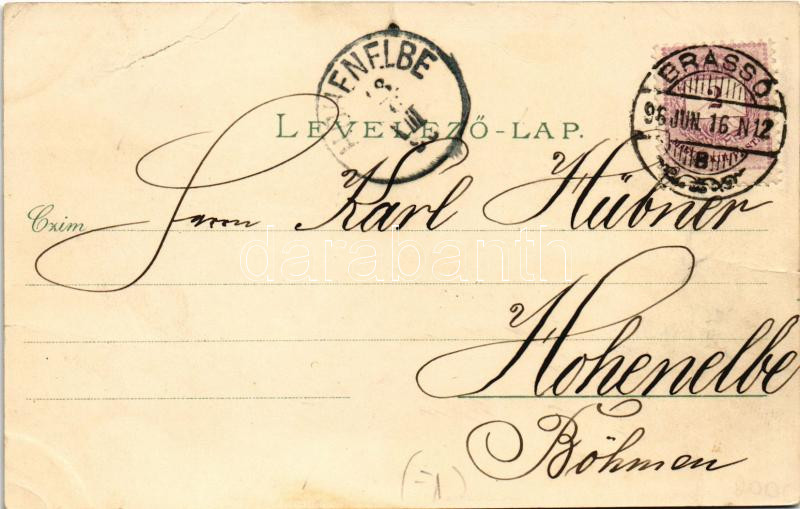 HOHENELBE
BRASSÓ
2
96 JUN. 16 N12
B
LEVELEZŐ-LAP.
Czim
Herrn Karl Hübner
darabanth
Hohenelbe
Böhmen